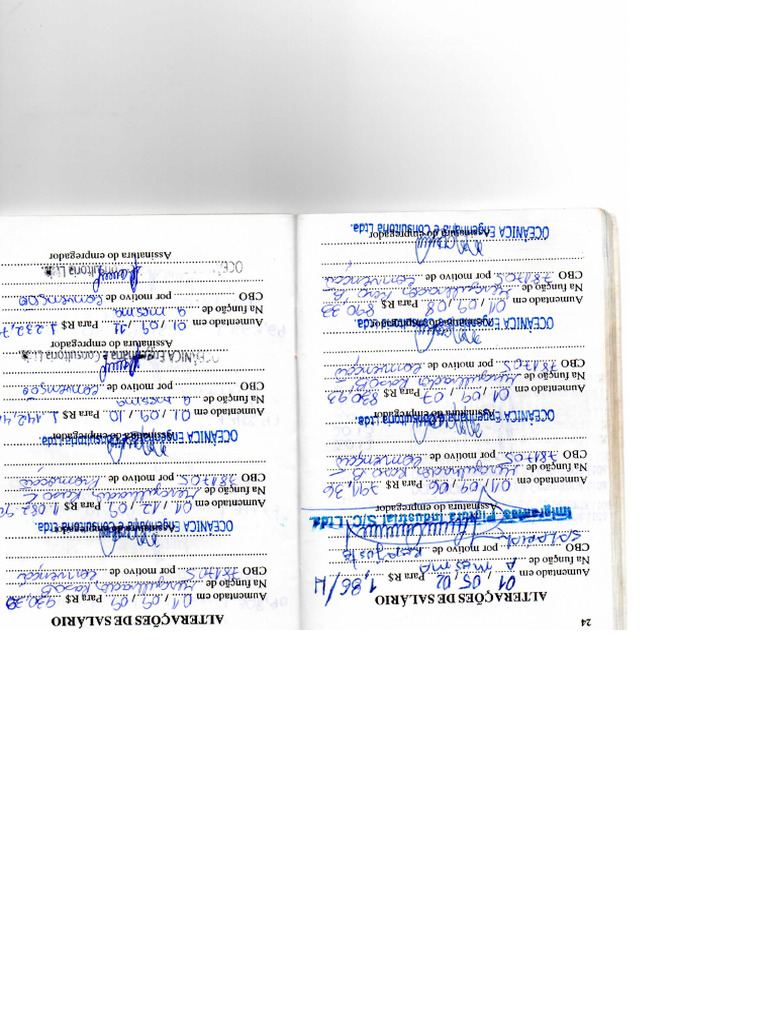 24
ALTERAÇÕES DE SALÁRIO
Aumentado em 01 / 05 / 02 Para R$ 1,86/H
Na função de A MESMA
CBO por motivo de REAJUSTE
SALARIAL
Imigrantes Pintura Industrial S/C Ltda.
Assinatura do empregador
Aumentado em 01 / 09 / 06 Para R$ 791,36
Na função de Mergulhador Raso B
CBO 7817.05 por motivo de Convenção
Assinatura do empregador
OCEÂNICA Engenharia e Consultoria Ltda.
Aumentado em 01 / 09 / 07 Para R$ 830,93
Na função de Mergulhador Raso B
CBO 7817.05 por motivo de Convenção
Assinatura do empregador
OCEÂNICA Engenharia e Consultoria Ltda.
Aumentado em 01 / 09 / 08 Para R$ 890,33
Na função de Mergulhador Raso B
CBO 7817.05 por motivo de Convenção
Assinatura do empregador
OCEÂNICA Engenharia e Consultoria Ltda.
ALTERAÇÕES DE SALÁRIO
Aumentado em 01 / 09 / 09 Para R$ 930,39
Na função de Mergulhador Raso B
CBO 7817.05 por motivo de Convenção
Assinatura do empregador
OCEÂNICA Engenharia e Consultoria Ltda
Aumentado em 01 / 12 / 09 Para R$ 1.082,9
Na função de Mergulhador Raso C
CBO 7817.05 por motivo de Promoção
Assinatura do empregador
OCEÂNICA Engenharia e Consultoria Ltda.
Aumentado em 01 / 09 / 10 Para R$ 1.142,4
Na função de a mesma
CBO por motivo de Convenção
OCEÂNICA Engenharia e Consultoria Ltda
Assinatura do empregador
Aumentado em 01 / 09 / 11 Para R$ 1.232,7
Na função de a mesma
CBO por motivo de Convenção
Assinatura do empregador